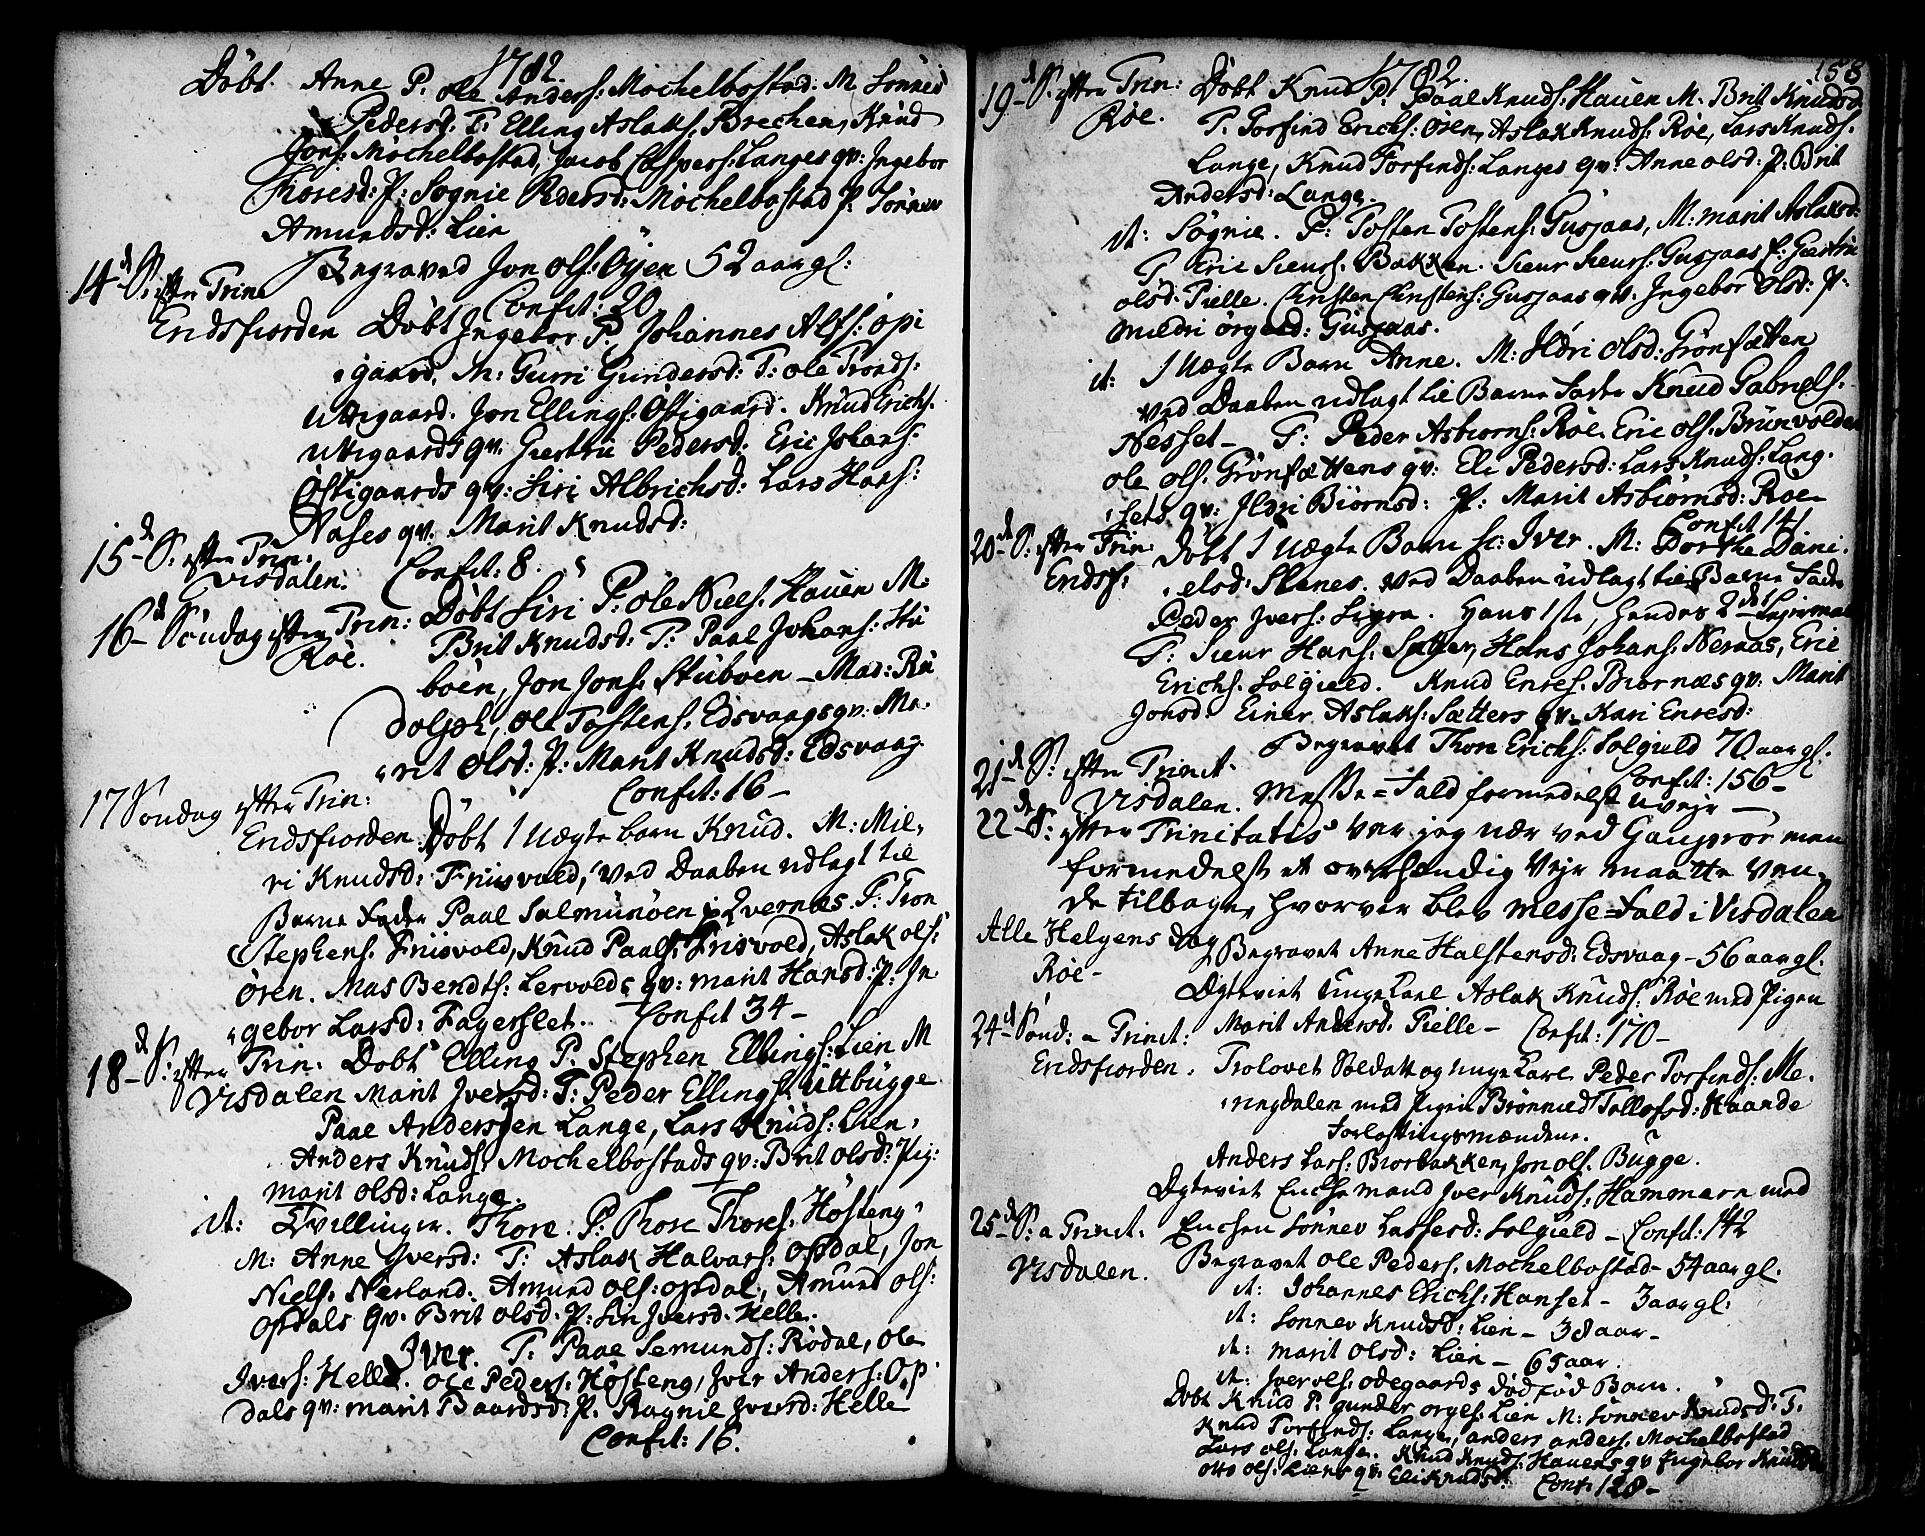 1782.
Døbt. Anne P. Ole Anders: Mochelbostad. M Sønnev
Pedersd. T. Elling Aslaks. Brechen, Knud
Jons: Mochelbostad, Jacob Caspers: Langes qv: Ingebor
Toresd: P: Sognie Pedersd: Mochelbostad P. Sønnev
Amundsd: Lien
14d S. efter Trin. Begraved Jon Ols: Øyen 52 aar gl:
Confit: 20
Eridsfiorden Døbt Ingebor P. Johannes Alfs: Opi
gaard. M: Gurri Gundersd: T: Ole Tronds.
Uttigaard. Jon Ellings: Østigaard. Knud Erichs.
Uttigaards qv. Giertru Pedersd: Eric Johans:
Østigaards qv: Siri Albrichsd: Lars Hans:
Nases qv: Marit Knudsd:
15d S. efter Trin.
Visdalen. Confit: 8.
16d Søndag efter Trin: Døbt Siri P. Ole Niels. Hauen M:
Røe. Brit Knudsd: T: Paal Johans: Stu
boen, Jon Jons. Stuboen - Mad: Ru
dolph, Ole Tostens. Edsvaags qv: Ma
rit Olsd: P: Marit Knudsd: Edsvaag
Confit: 16 -
17 Søndag efter Trin:
Eridsfiorden Døbt 1 Uægte barn Knud. M: Mil
ri Knudsd: Frisvold, ved Daaben udlagt til
Barne Fader Paal Salmunøen i Qvernes. T: Tron
Stephens. Frisvold, Knud Paals. Frisvold, Aslak Ols:
Øren. Mas Bendts: Lervolds qv: Marit Hansd: P: In
gebor Larsd: Fagerslet. Confit 34 -
18d S. efter Trin. Døbt Elling P. Stephen Ellings: Lien M
Visdalen Marit Iversd: T: Peder Ellings. Uttbugge
Paal Anderssen Lange, Lars Knuds: Lien,
Anders Knuds. Mochelbostads qv: Brit Olsd: Pig:
Marit Olsd: Lange.
it: Tvillinger. Thore. P. Thore Thores. Høsteng,
M: Anne Iversd: T: Aslak Halvars: Opdal, Jon
Niels. Nerland. Amund Ols: Opdal, Amund Ols:
Opdals qv. Brit Olsd. P: Siri Iversd. Helle.
Iver. T. Paal Semunds: Rødal, Ole
Ivers: Helle. Ole Peders: Høsteng, Iver Anders: Op
dals qv: Marit Baardsd: P. Ragnil Iversd: Helle
Confit: 16.
158
1782.
19d S. efter Trin: Døbt Knud P. Paal Knuds. Hauen M: Brit Knudsd.
Røe. T. Torfind Erichs: Øren, Aslak Knuds. Røe, Lars Knuds.
Lange, Knud Torfinds: Langes qv: Anne Olsd: P: Brit
Andersd: Lange.
it: Sognie. P: Tosten Tostens. Gusjaas, M: Marit Aslaksd.
T. Eric Siurs. Bakken. Siur Siurs: Gusjaas P: Giertru
Olsd. Tielle. Christen Christens: Gusjaas qv: Ingebor Olsd: P:
Mildri Ørgesd: Gusjaas.
it: 1 Uægte Barn Anne. M: Ildri Olsd: Grønsætten
ved Daaben udlagt til Barne Fader Knud Gabriels.
Nesset - T: Peder Asbiørns. Røe. Eric Ols. Brunvolden
Ole Ols. Grønsættens qv: Eli Pedersd: Lars Knuds: Lang
sets qv: Ildri Biørnsd: P: Marit Asbiørnsd: Røe
Confit 141
20d S: efter Trin: Døbt 1 Uægte Barn sc: Iver. M: Dorthe Dani
Eridsf: elsd: Slenes. ved Daaben udlagt til Barne Fader
Peder Ivers: Sigra. Hans 1ste, hendes 2det Leiermaal
T: Siur Hans. Sætter, Hans Johans. Neraas, Eric
Erichs. Solgield. Knud Enres. Biørnæs qv: Marit
Jonsd: Einer Aslaks: Sætters qv. Kari Enresd:
Begravet Thore Erichs: Solgield 70 aar gl.
21d S: efter Trinit. Confit: 156 -
Visdalen. Messe=Fald formedelst uvejr -
22d S: efter Trinitatis var jeg nær ved Gauprør men
formedelst et overhændig Vejr maatte ven
de tilbage, hvorver blev Messe=Fald i Visdalen
Alle Helgens dag Begravet Anne Halstensd: Edsvaag - 56 aar gl:
Røe - Dgteviet Unge Karl Aslak Knuds: Røe med Pigen
24d Sønd: a Trinit: Marit Andersd. Tielle - Confit: 170 -
Eridsfiorden. Trolovet Soldatt og Unge Karl Peder Torfinds: Me
ringdalen med Pigen Brønnild Tollofsd: Haande
Forlovtingsmændene.
Anders Lars: Biørbakken, Jon Ols. Bugge.
Dgteviet Enchemand Iver Knuds. Hammeren med
25d S: a Trinit. Enchen Sønnev Lassesd: Solgield - Confit: 142
Visdalen. Begravet Ole Peders. Mochelbostad - 54 aar gl.
it: Johannes Erichs: Hanset - 3 aar gl:
it: Sønnev Knudsd: Lien - 38 aar -
it: Marit Olsd: Lien - 65 aar.
it. Iver Ols: Ødegaards død fød Barn.
Døbt Knud P. Gunder Ørges: Lien M: Sønnev Knudsd: T.
Knud Torfinds: Lange, Anders Anders. Mochelbostad
Lars Ols. Lange. Knud Knuds: Hauens qv Ingebor Knudsd
Otto Ols: Liens qv: Eli Knudsd: Conf: 128 -